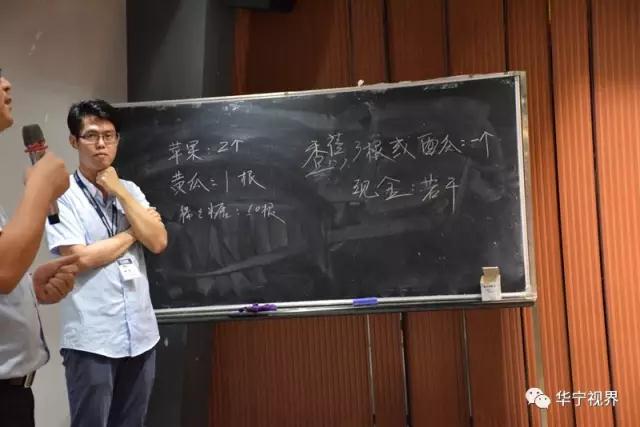 苹果:2个
黄瓜:1根
棒々糖:50根
香蕉:3根或西瓜:一个
现金:若干
华宁视界